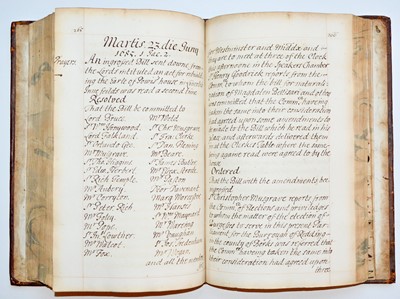 Martis 23 die Juny
1685. 1 Jac. 2
Prayers.
An ingrossed Bill sent downe from
the Lords intituled an act for rebuild-
ing the Earle of Powis' house in Lincolns
Inne feilds was read a second time
Resolved
That the Bill be committed to
Lord Bruce. Mr Held
Sr Wm Honywood. Sr Chr. Musgrave
Lord Falkland. Sr Fra. Clerke
Sr Orlando Gee. Sr Dan. Fleming
Mr Musgrave.
Sr Tho. Higgins. Sr James Butler
Sr Edw. Herbert
Sr Rich. Temple.
Mr Aubery.
Mr Cornyton.
Sr Peter Rich
Mr Foley.
Mr Pepis.
Sr Jn Lowther Mr Vaughan
Mr Walcot.
Mr Fox.
and all the members
for Westminster and Middx and
they are to meet at three of the Clock
this afternoone in the Speakers Chamber
Sr Henry Goodrick reports from the
Comm: to whom the bill for naturali-
zation of Magdalen Pellisary and others
was committed that the Comm: having
taken the same into their consideration
had agreed upon some amendments to
be made to the Bill which he read in his
place and afterwards delivered them
at the Clerks Table where the same
being againe read were agreed to by the
house
Ordered
That the Bill with the amendments be
ingrossed
Sr Christopher Musgrave reports from
the Comm: of Elections and priviledges
to whom the matter of the election of
Burgesses to serve in this present Par-
liament for the Burrough of Reading
in the county of Berks was referred that
the Comm: having taken the same into
their consideration had agreed upon
three